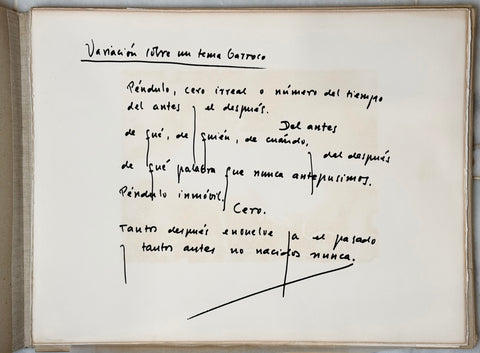 Variación sobre un tema barroco
Péndulo, cero irreal o número del tiempo
del antes y el después.
Del antes
de qué, de quién, de cuándo,
del después
de qué palabra que nunca antepusimos.
Péndulo inmóvil.
Cero.
Tantos después envuelve ya el pasado
tantos antes no nacidos nunca.